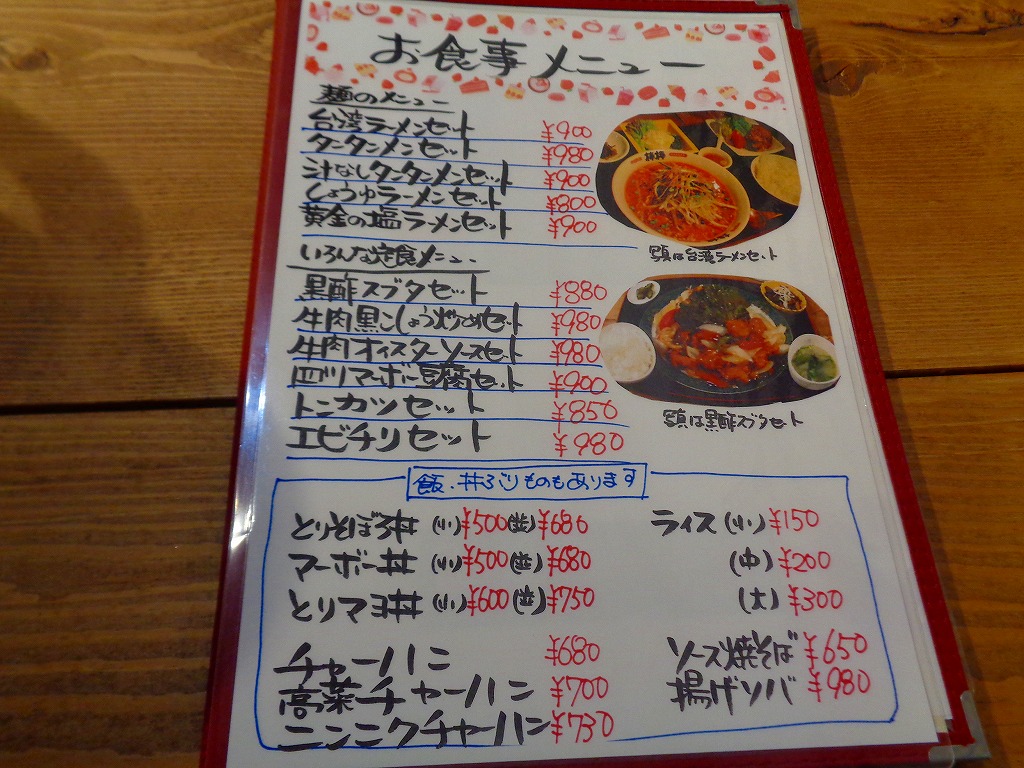 お食事メニュー
麺のメニュー
台湾ラーメンセット ¥900
タンタンメンセット ¥980
汁なしタンタンメンセット ¥900
しょうゆラーメンセット ¥800
黄金の塩ラーメンセット ¥900
写真は台湾ラーメンセット
いろんな定食メニュー
黒酢スブタセット ¥880
牛肉黒こしょう炒めセット ¥980
牛肉オイスターソースセット ¥980
四川マーボー豆腐セット ¥900
トンカツセット ¥850
エビチリセット ¥980
写真は黒酢スブタセット
飯・丼ぶりものもあります
とりそぼろ丼 (小)¥500(並)¥680
マーボー丼 (小)¥500(並)¥680
とりマヨ丼 (小)¥600(並)¥750
チャーハン ¥680
高菜チャーハン ¥700
ニンニクチャーハン ¥730
ライス(小)¥150
(中)¥200
(大)¥300
ソース焼そば ¥650
揚げソバ ¥980